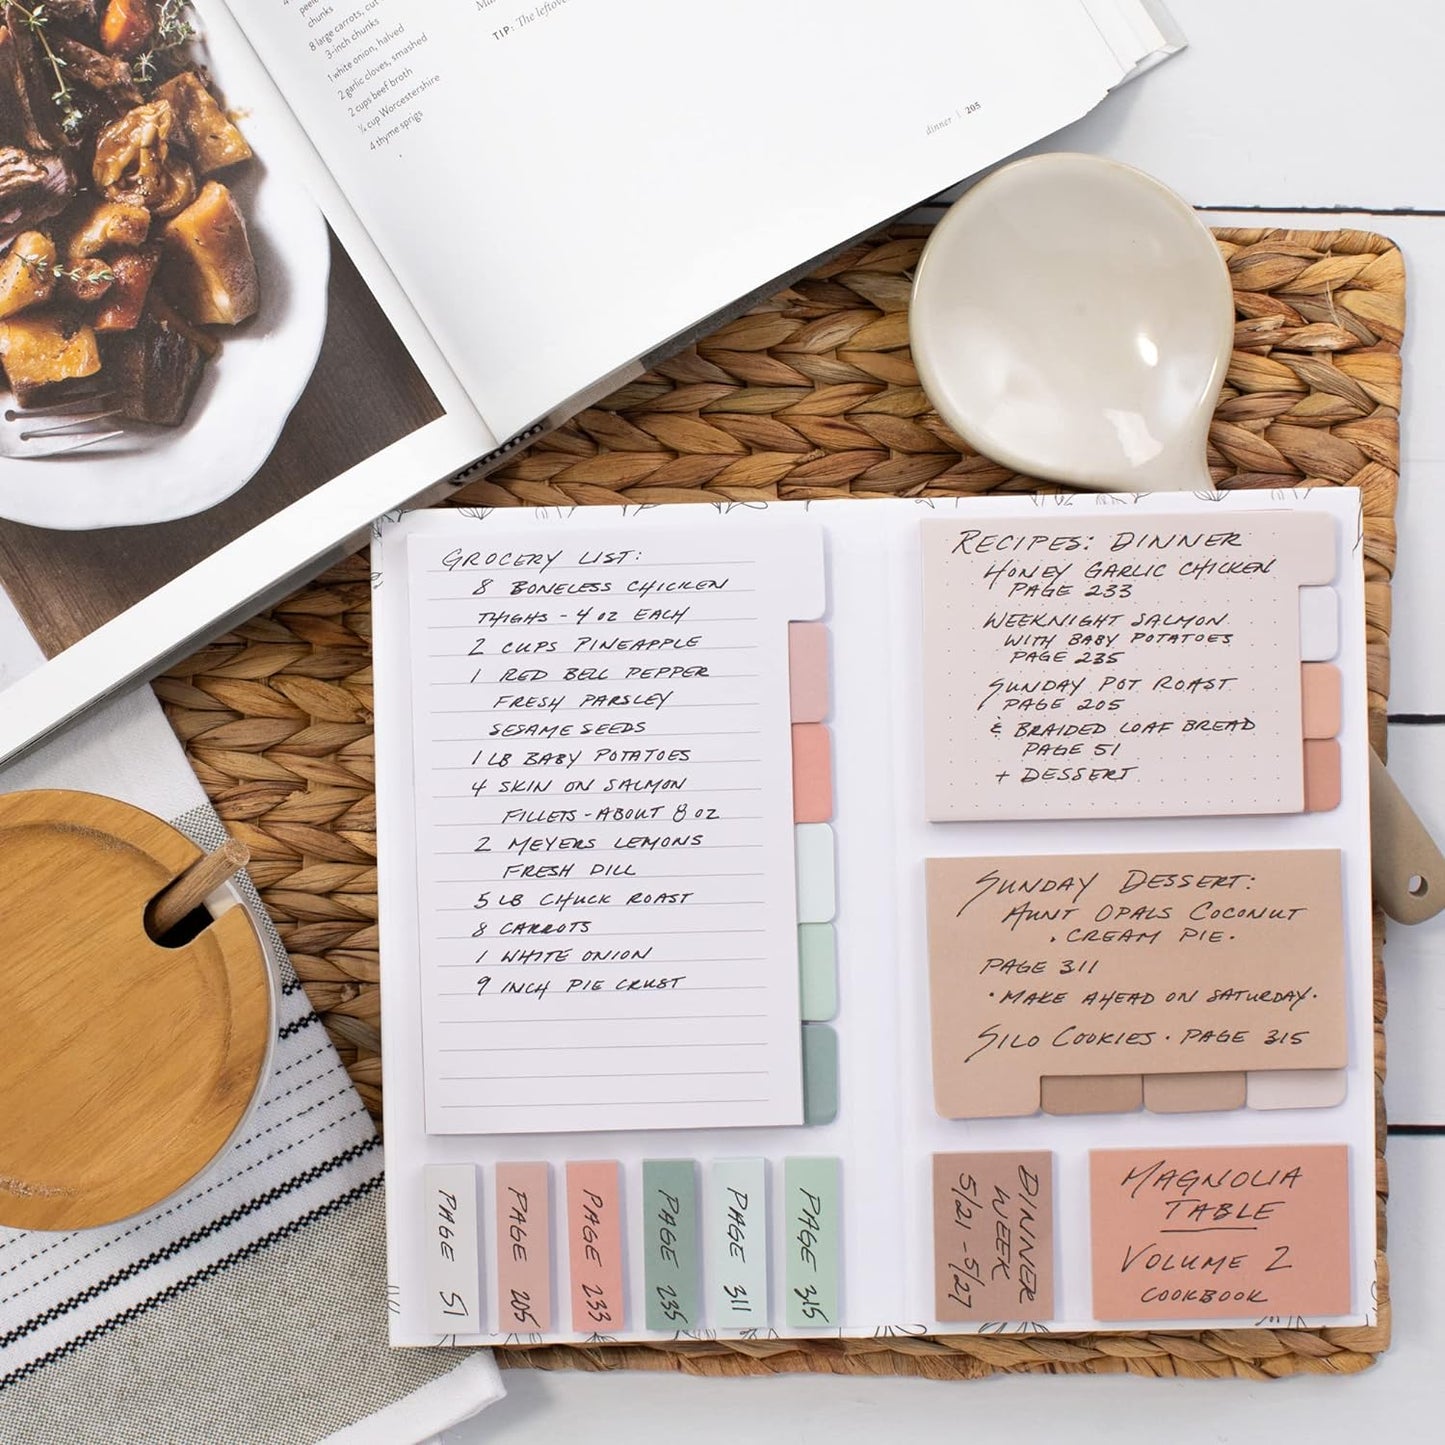 peele
chunks
8 large carrots, cut
3-inch chunks
1 white onion, halved
2 garlic cloves, smashed
2 cups beef broth
¼ cup Worcestershire
4 thyme sprigs
TIP: The leftove
dinner | 205
GROCERY LIST:
8 BONELESS CHICKEN
THIGHS - 4 OZ EACH
2 CUPS PINEAPPLE
1 RED BELL PEPPER
FRESH PARSLEY
SESAME SEEDS
1 LB BABY POTATOES
4 SKIN ON SALMON
FILLETS - ABOUT 8 OZ
2 MEYERS LEMONS
FRESH DILL
5 LB CHUCK ROAST
8 CARROTS
1 WHITE ONION
9 INCH PIE CRUST
RECIPES: DINNER
HONEY GARLIC CHICKEN
PAGE 233
WEEKNIGHT SALMON
WITH BABY POTATOES
PAGE 235
SUNDAY POT ROAST
PAGE 205
& BRAIDED LOAF BREAD
PAGE 51
+ DESSERT
SUNDAY DESSERT:
AUNT OPALS COCONUT
• CREAM PIE •
PAGE 311
• MAKE AHEAD ON SATURDAY •
SILO COOKIES • PAGE 315
PAGE 51
PAGE 205
PAGE 233
PAGE 235
PAGE 311
PAGE 315
DINNER
WEEK
5/21 - 5/27
MAGNOLIA
TABLE
VOLUME 2
COOKBOOK